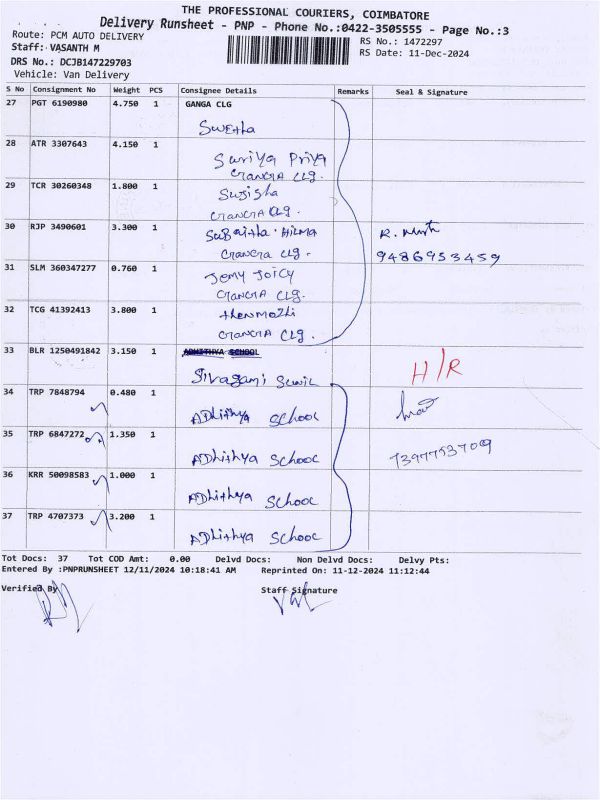 THE PROFESSIONAL COURIERS, COIMBATORE
Delivery Runsheet - PNP - Phone No.:0422-3505555 - Page No.:3
Route: PCM AUTO DELIVERY
RS No.: 1472297
Staff: VASANTH M
RS Date: 11-Dec-2024
DRS No.: DCJB147229703
Vehicle: Van Delivery
S No Consignment No Weight PCS Consignee Details Remarks Seal & Signature
27 PGT 6190980 4.750 1 GANGA CLG
Swetha
28 ATR 3307643 4.150 1
Suriya Priya
GANGA CLG.
29 TCR 30260348 1.800 1 Sujisha
GANGA CLG.
30 RJP 3490601 3.300 1 Subaitha. Hilma
GANGA CLG. 9486953459
31 SLM 360347277 0.760 1 Jemy Joicy
GANGA CLG.
32 TCG 41392413 3.800 1 thenmozhi
GANGA CLG.
33 BLR 1250491842 3.150 1 ADHITHYA SCHOOL
Sivagami Sunil H/R
34 TRP 7848794 0.480 1
ADhithya SCHOOL
35 TRP 6847272 1.350 1
ADhithya SCHOOL 7397753709
36 KRR 50098583 1.000 1
ADhithya SCHOOL
37 TRP 4707373 3.200 1
ADhithya SCHOOL
Tot Docs: 37 Tot COD Amt: 0.00 Delvd Docs: Non Delvd Docs: Delvy Pts:
Entered By :PNPRUNSHEET 12/11/2024 10:18:41 AM Reprinted On: 11-12-2024 11:12:44
Verified By Staff Signature